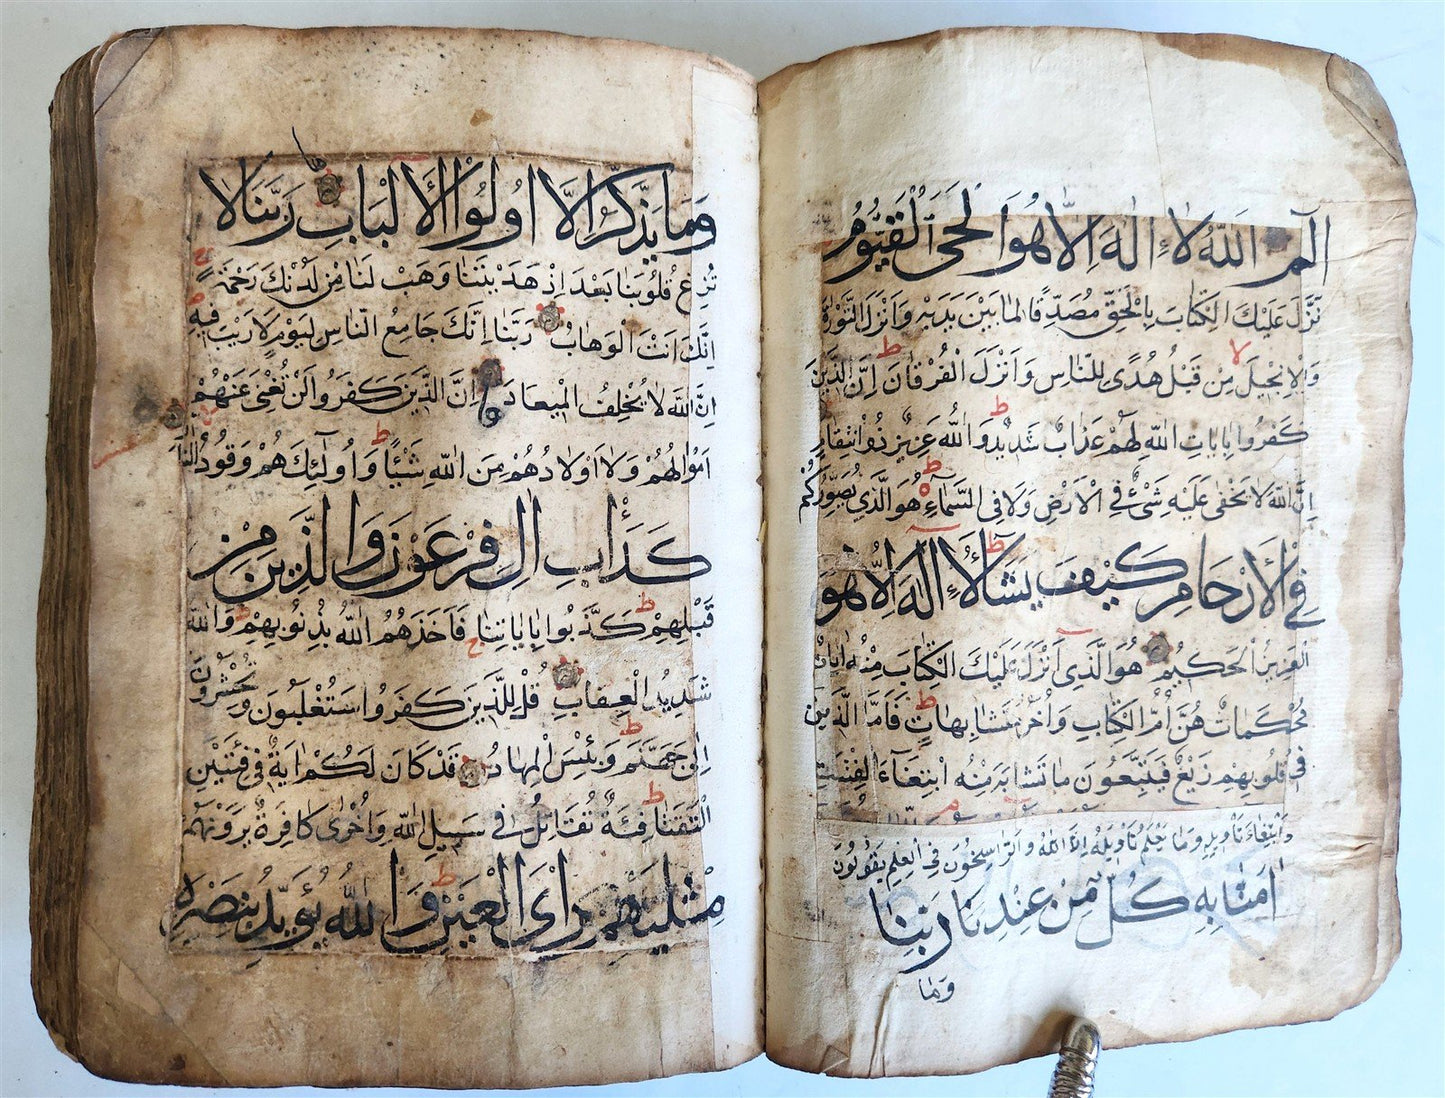 الٓمٓ اَللّٰهُ لَا اِلٰهَ اِلَّا هُوَ الْحَىُّ الْقَيُّومُ
نَزَّلَ عَلَيْكَ الْكِتَابَ بِالْحَقِّ مُصَدِّقًا لِمَا بَيْنَ يَدَيْهِ وَاَنْزَلَ التَّوْرٰةَ
وَالْاِنْجِيلَ مِنْ قَبْلُ هُدًى لِلنَّاسِ وَاَنْزَلَ الْفُرْقَانَ اِنَّ الَّذِينَ
كَفَرُوا بِاٰيَاتِ اللّٰهِ لَهُمْ عَذَابٌ شَدِيدٌ وَاللّٰهُ عَزِيزٌ ذُو انْتِقَامٍ
اِنَّ اللّٰهَ لَا يَخْفٰى عَلَيْهِ شَىْءٌ فِى الْاَرْضِ وَلَا فِى السَّمَاءِ هُوَ الَّذِى يُصَوِّرُكُمْ
فِى الْاَرْحَامِ كَيْفَ يَشَاءُ لَا اِلٰهَ اِلَّا هُوَ
الْعَزِيزُ الْحَكِيمُ هُوَ الَّذِى اَنْزَلَ عَلَيْكَ الْكِتَابَ مِنْهُ اٰيَاتٌ
مُحْكَمَاتٌ هُنَّ اُمُّ الْكِتَابِ وَاُخَرُ مُتَشَابِهَاتٌ فَاَمَّا الَّذِينَ
فِى قُلُوبِهِمْ زَيْغٌ فَيَتَّبِعُونَ مَا تَشَابَهَ مِنْهُ ابْتِغَاءَ الْفِتْنَةِ
وَابْتِغَاءَ تَاْوِيلِهِ وَمَا يَعْلَمُ تَاْوِيلَهُ اِلَّا اللّٰهُ وَالرَّاسِخُونَ فِى الْعِلْمِ يَقُولُونَ
اٰمَنَّا بِهِ كُلٌّ مِنْ عِنْدِ رَبِّنَا
وَمَا
وَمَا يَذَّكَّرُ اِلَّا اُولُوا الْاَلْبَابِ رَبَّنَا لَا
تُزِغْ قُلُوبَنَا بَعْدَ اِذْ هَدَيْتَنَا وَهَبْ لَنَا مِنْ لَدُنْكَ رَحْمَةً
اِنَّكَ اَنْتَ الْوَهَّابُ رَبَّنَا اِنَّكَ جَامِعُ النَّاسِ لِيَوْمٍ لَا رَيْبَ فِيهِ
اِنَّ اللّٰهَ لَا يُخْلِفُ الْمِيعَادَ اِنَّ الَّذِينَ كَفَرُوا لَنْ تُغْنِىَ عَنْهُمْ
اَمْوَالُهُمْ وَلَا اَوْلَادُهُمْ مِنَ اللّٰهِ شَيْـًٔا وَاُولٰٓئِكَ هُمْ وَقُودُ النَّارِ
كَدَاْبِ اٰلِ فِرْعَوْنَ وَالَّذِينَ مِنْ
قَبْلِهِمْ كَذَّبُوا بِاٰيَاتِنَا فَاَخَذَهُمُ اللّٰهُ بِذُنُوبِهِمْ وَاللّٰهُ
شَدِيدُ الْعِقَابِ قُلْ لِلَّذِينَ كَفَرُوا سَتُغْلَبُونَ وَتُحْشَرُونَ
اِلٰى جَهَنَّمَ وَبِئْسَ الْمِهَادُ قَدْ كَانَ لَكُمْ اٰيَةٌ فِى فِئَتَيْنِ
الْتَقَتَا فِئَةٌ تُقَاتِلُ فِى سَبِيلِ اللّٰهِ وَاُخْرٰى كَافِرَةٌ يَرَوْنَهُمْ
مِثْلَيْهِمْ رَاْىَ الْعَيْنِ وَاللّٰهُ يُؤَيِّدُ بِنَصْرِهِ